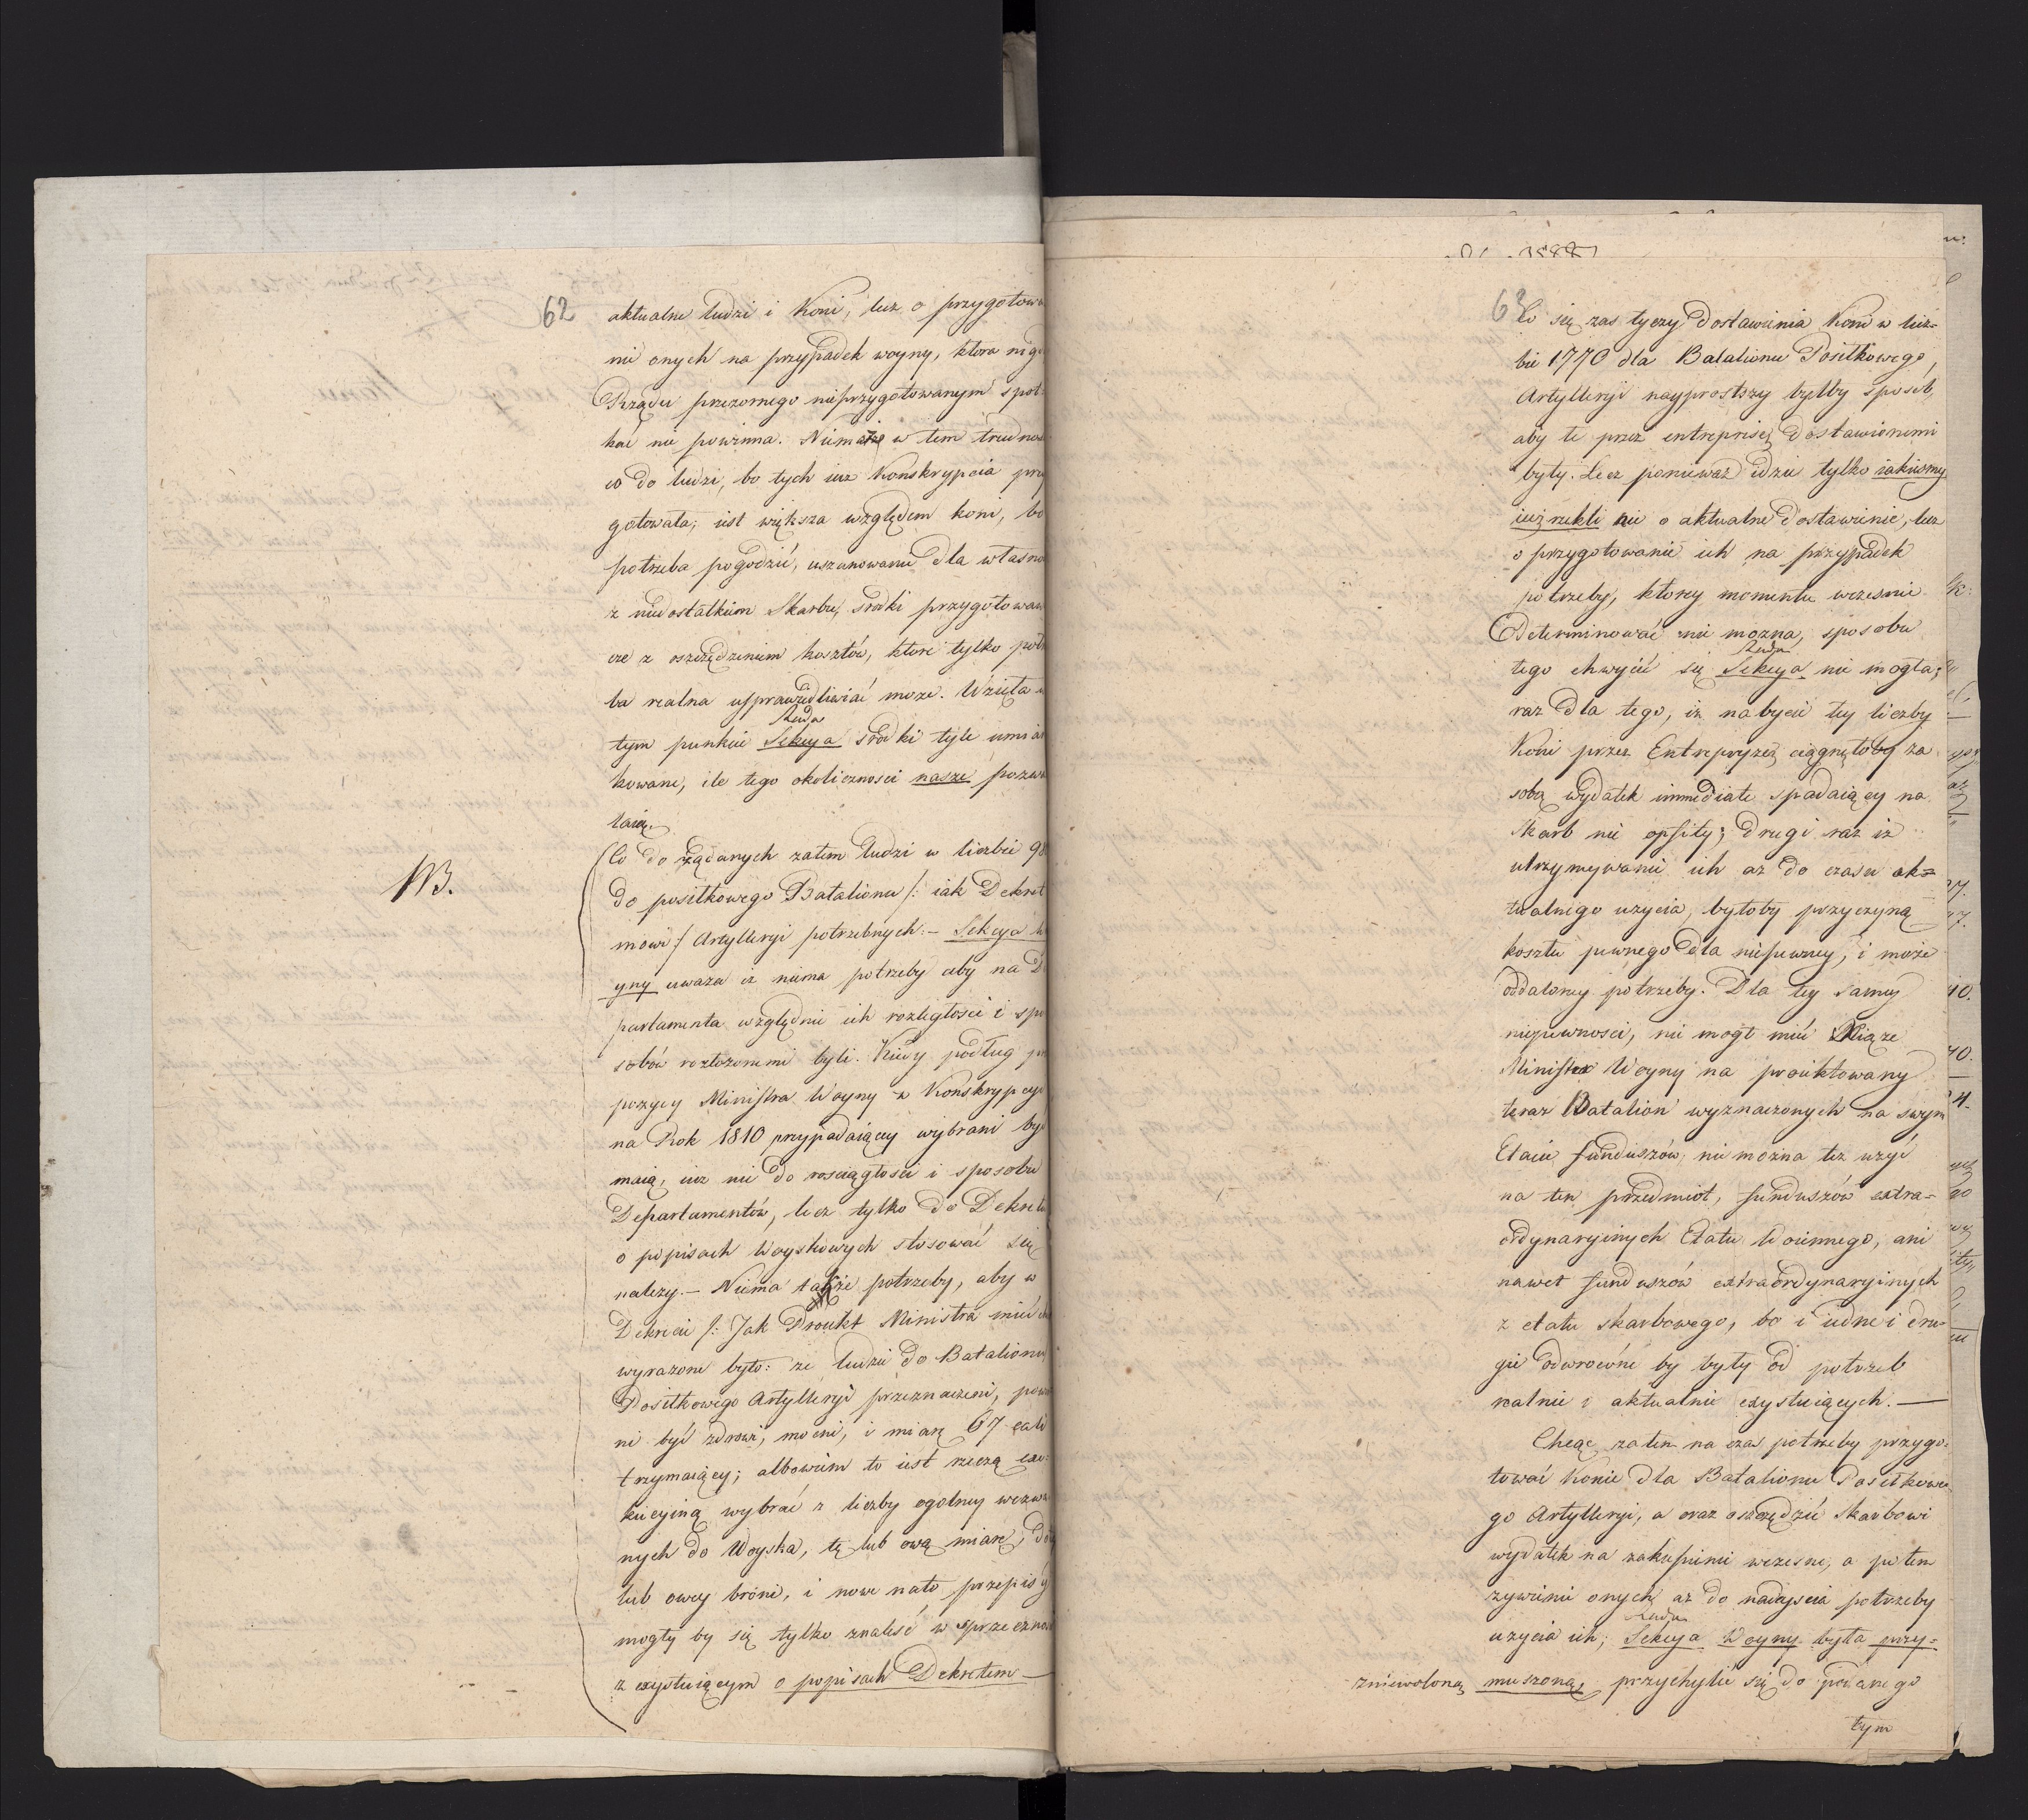 62
aktualne ludzi i Koni, lecz o przygotowa
nie onych na przypadek woyny, ktora nigd
Rządu przezornego nieprzygotowanym spot
kać nie powinna. Niemasz w tem trudnos
co do ludzi, bo tych iuż Konskrypcia przy
gotowała; iest większa względem koni, bo
potrzeba pogodzić, uszanowanie dla własno
z niedostatkiem Skarbu, srodki przygotowaw
cze z oszczędzeniem kosztów, które tylko potrz
ba realna usprawiedliwiać może. Wzięła w
Rada
tym punkcie Sekcya srodki tyle umiar
kowane, ile tego okoliczności nasze pozwa
laią.
NB.
Co do żądanych zatem ludzi w liczbie 98
do posiłkowego Batalionu /: iak Dekret
mówi :/ Artylleryi potrzebnych. – Sekcya Wo
yny uważa iż niema potrzeby aby na De
partamenta względnie ich rozległości i spo
sobów rozłożonemi byli. Kiedy podług pro
pozycy Ministra Woyny z Konskrypcyi
na Rok 1810 przypadaiącey wybrani być
maią, iuż nie do rosciągłości i sposobu
Departamentów, lecz tylko do Dekretu
o popisach Woyskowych stosować się
należy. – Niema także potrzeby, aby w
Dekrecie /: Jak Proiekt Ministra mieć chc
wyrażone było: że ludzie do Batalionu
Posiłkowego Artylleryi przeznaczeni, powin
ni być zdrowi, mocni, i miarę 67 cali
trzymaiący; albowiem to iest rzeczą exe-
kucyiną wybrać z liczby ogolney wezwa
nych do Woyska, tę lub ową miarę, do
lub owey broni, i nowe nato przepisy
mogły by się tylko znaleść w sprzecznoś
z exystuiącym o popisach Dekretem —
63
Co się zas tyczy Dostawienia Koni w licz=
bie 1770 dla Batalionu Posiłkowego,
Artylleryi nayprostszy byłby sposób,
aby te przez entreprizę dostawionemi
były. Lecz ponieważ idzie tylko iakiesmy
iuż rzekli nie o aktualne dostawienie, lecz
o przygotowanie ich na przypadek
potrzeby, ktorey momentu wczesnie
Determinować nie można, sposobu
Rada
tego chwycić się Sekcya nie mogła;
raz dla tego, iż nabycie tey liczby
Koni przez Entrepryzę ciągnęłoby za
sobą wydatek immediate spadaiący na
Skarb nie opfity; drugi raz iż
utrzymywanie ich aż do czasu ak=
tualnego użycia, byłoby przyczyną
kosztu pewnego dla niepewney, i może
oddaloney potrzeby. Dla tey samey
niepewnosci, nie mogł mieć Xiąże
Minister Woyny na proiektowany
teraz Batalion wyznaczonych na swym
Etacie funduszów, nie można też użyć
na ten przedmiot, funduszów extra=
ordynaryinych Etatu Woiennego, ani
nawet funduszów extraordynaryinych
z etatu skarbowego, bo i iedne i dru-
gie odwrocone by były od potrzeb
realnie i aktualnie exystuiących. —
Chcąc zatem na czas potrzeby przygo-
tować Konie dla Batalionu Posiłkowe
go Artylleryi, a oraz oszczędzić Skarbowi
wydatek na zakupienie wczesne, a potem
żywienie onych, aż do nadeyscia potrzeby
Rada
użycia ich; Sekcya Woyny była przy=
zniewoloną muszoną, przychylić się do podanego
tym